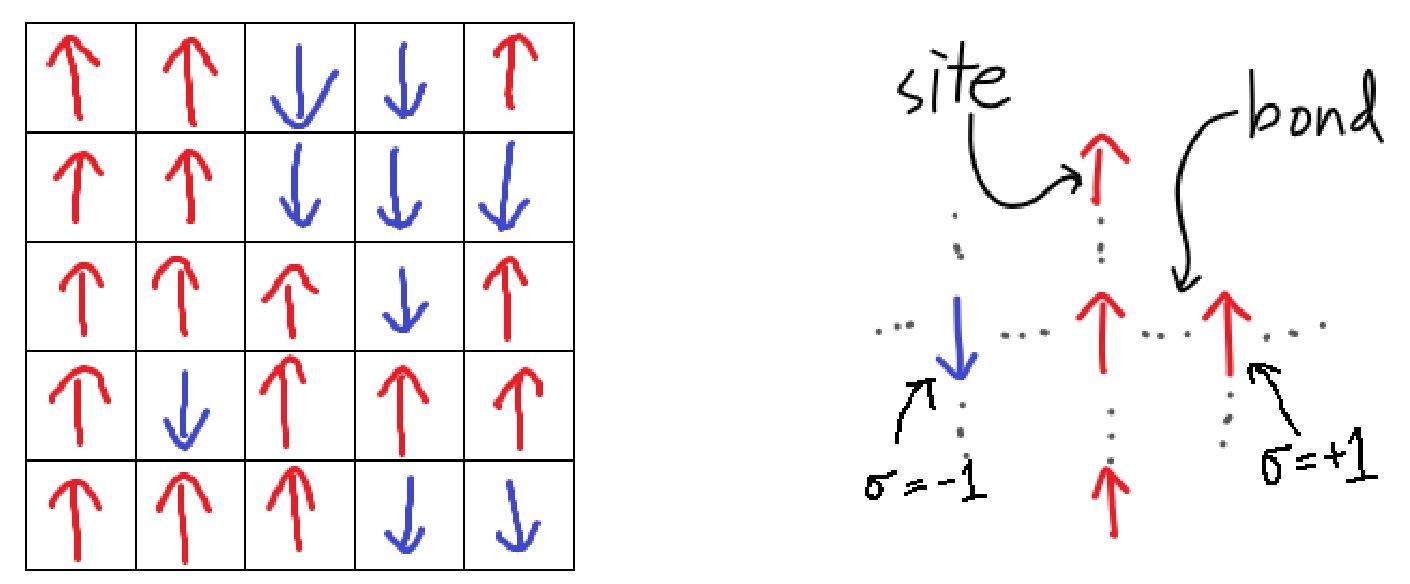 site
bond
σ=-1
σ=+1